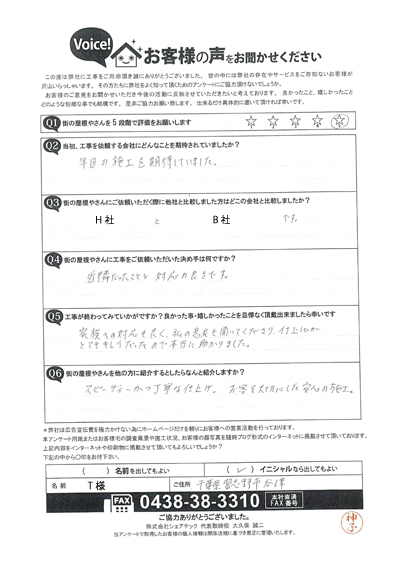 Voice!
お客様の声をお聞かせください
この度は弊社に工事をご用命頂き誠にありがとうございました。 世の中には弊社の存在やサービスをご存知ないお客様が
沢山いらっしゃいます。 その方たちに弊社をよく知って頂くためのアンケートにご協力いただけないでしょうか。
お客様のご意見をお聞かせいただき今後の活動に反映させていきたいと考えております。 良かったこと、嬉しかったこと
どのような些細な事でも結構です。 是非ご協力お願い致します。 出来るだけ具体的に書いて頂ければ幸いです。
Q1 街の屋根やさんを5段階で評価をお願いします
Q2 当初、工事を依頼する会社にどんなことを期待されていましたか?
早目の施工を期待していました。
Q3 街の屋根やさんにご依頼いただく際に他社と比較しました方はどこの会社と比較しましたか?
H社 と B社 です。
Q4 街の屋根やさんに工事をご依頼いただいた決め手は何ですか?
近隣だったことと対応の良さです。
Q5 工事が終わってみていかがですか?良かった事・嬉しかったことを忌憚なく頂戴出来ましたら幸いです
家族への対応も良く、私の意見も聞いてくださり、仕上げが
とてもきれいだったので本当に助かりました。
Q6 街の屋根やさんを他の方に紹介するとしたらなんと紹介しますか?
スピーディーかつ丁寧な仕上げ。 お客を大切にした安心の施工。
*弊社は広告宣伝費を極力かけない為にホームページだけを頼りにお客様への営業活動を行っております。
本アンケート用紙またはお客様宅の調査風景や施工状況、お客様の顔写真を随時ブログ形式のインターネットに掲載させて頂いております。
上記内容をインターネットや印刷物に掲載させて頂いてもよろしいでしょうか?
下記の中から○印をお付け下さい。
( ) 名前を出してもよい
( ✓ ) イニシャルなら出してもよい
名前 T様 ご住所 千葉県習志野市谷津
FAX 0438-38-3310 本社直通 FAX番号
ご協力ありがとうございました。
株式会社シェアテック 代表取締役 大久保 誠二
当アンケートで取得したお客様の個人情報は関係法規に基づき厳正に管理いたします。